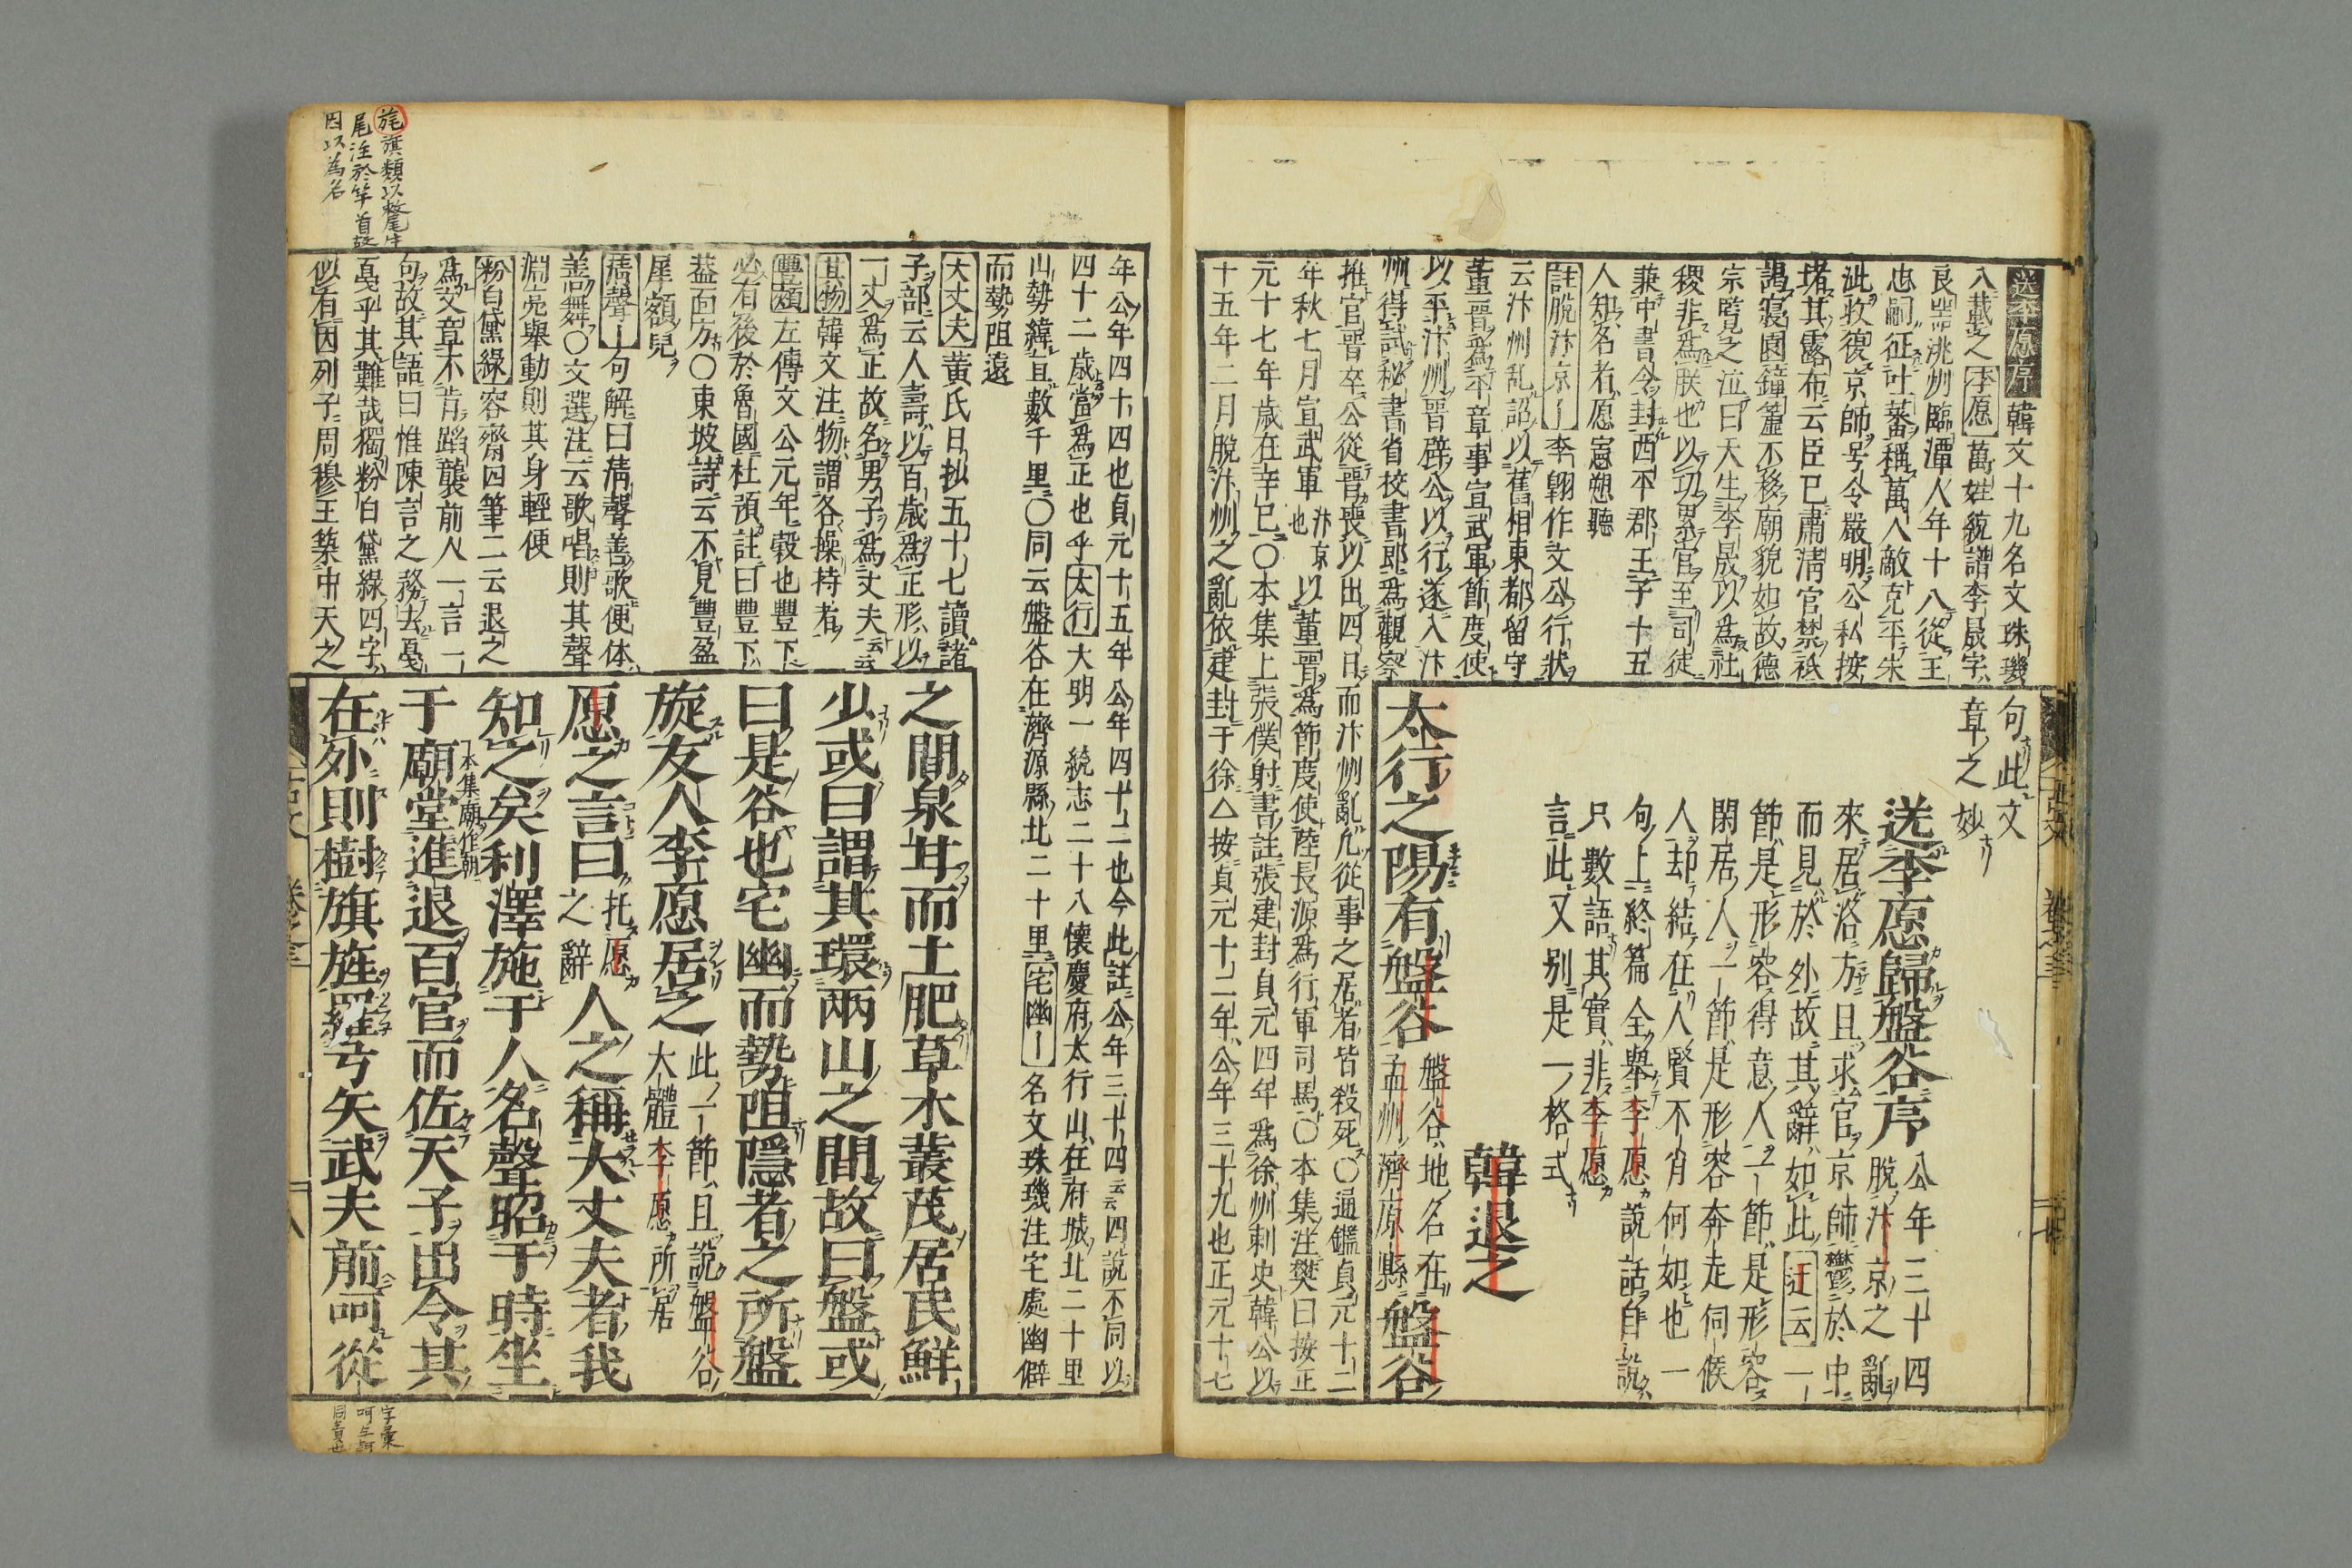 送李愿序韓文十九名文珠璣
句此文
入載之李愿萬姓統譜李晟字
章之妙
良器洮州臨潭人年十八從王
忠嗣征吐蕃稱萬人敵克平朱
泚收復京師号令嚴明公私按
堵其露布云臣已肅清宮禁祇
謁寢園鐘簴不移廟貌如故德
宗覽之泣曰天生李晟以為社
稷非為朕也以功累官至司徒
兼中書令封西平郡王子十五
人知名者愿愬聽
註脫汴京李翱作文公行狀
云汴州乱詔以舊相東都留守
董晋為平章事宣武軍節度使
以平汴州晋辟公以行遂入汴
州得試秘書省校書郎為觀察
送李愿歸盤谷序
公年三十四
脫汴京之亂
來居洛方且求官京師鬱於中
而見於外故其辭如此迂云一
節是形容得意人一節是形容
閑居人一節是形容奔走伺候
人却結在人賢不肖何如也一
句上終篇全舉李愿說話自說
只數語其實非李愿
言此又別是一格式
韓退之
太行之陽有盤谷
盤谷地名在
孟州濟原縣
盤谷
推官晋卒公從晋喪以出四日而汴州亂凡從事之居者皆殺死〇通鑑貞元十二
年秋七月宣武軍汴京也以董晋為節度使陸長源為行軍司馬〇本集注樊曰按正
元十七年歲在辛巳〇本集上張僕射書註張建封貞元四年為徐州刺史韓公以
十五年二月脫汴州之亂依建封于徐△按貞元十二年公年三十九也正元十七
年公年四十四也貞元十五年公年四十二也今此註公年三十四云云四說不同以
四十二歲當為正也乎太行大明一統志二十八懷慶府太行山在府城北二十里
山勢綿亘數千里〇同云盤谷在濟源縣北二十里宅幽名文珠璣注宅處幽僻
而勢阻遠
大丈夫黃氏日抄五十七讀諸
子部云人壽以百歲為正形以
一丈為正故名男子為丈夫云云
其物韓文注物謂各操持者
豐頰左傳文公元年穀也豐下
必有後於魯國杜預註曰豐下
蓋面方〇東坡詩云不見豐盈
犀額兒
清聲句解曰清聲善歌便体
善舞〇文選注云歌唱則其聲
淵亮舉動則其身輕便
粉白黛綠容齋四筆二云退之
為文章不肯蹈襲前人一言一
句故其語曰惟陳言之務去戛
戛乎其難哉獨粉白黛綠四字
似有因列子周穆王築中天之
之間泉甘而土肥草木叢茂居民鮮
少或曰謂其環兩山之間故曰盤或
曰是谷也宅幽而勢阻隱者之所盤
旋友人李愿居之
此一節且說盤谷
大體李愿所居
愿之言曰
托愿
之辭
人之稱大丈夫者我
知之矣利澤施于人名聲昭于時坐
于廟堂進退百官而佐天子出令其
本集廟作朝
在外則樹旗旄羅弓矢武夫前呵從
旄旗類以犛尾牛
尾注於竿首故
因以為名
字彙